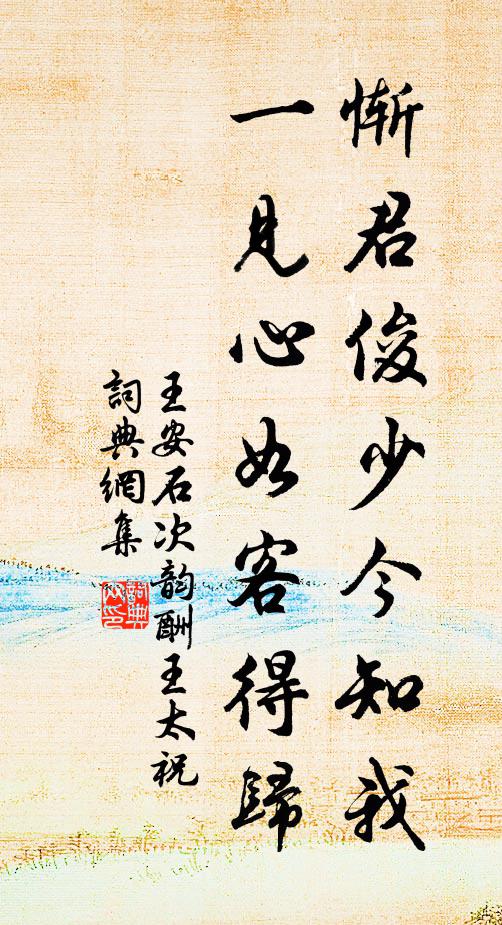 慚君俊少今知我
一見心如客得歸
王安石次韵酬王太祝
詞典網集
詞典